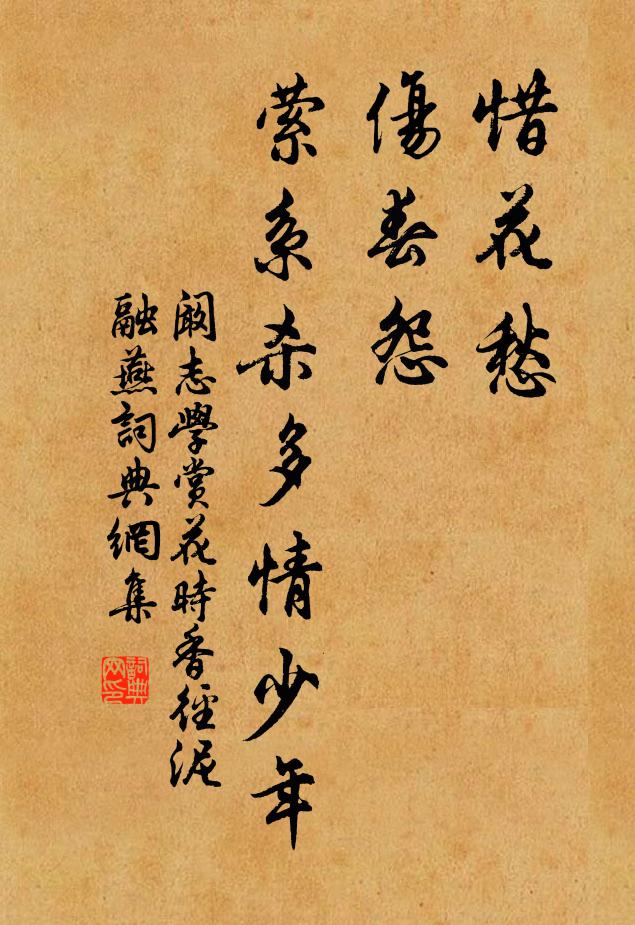 惜花愁
傷春怨
萦系杀多情少年
阚志學賞花時香徑泥
融燕詞典網集
詞典
网印